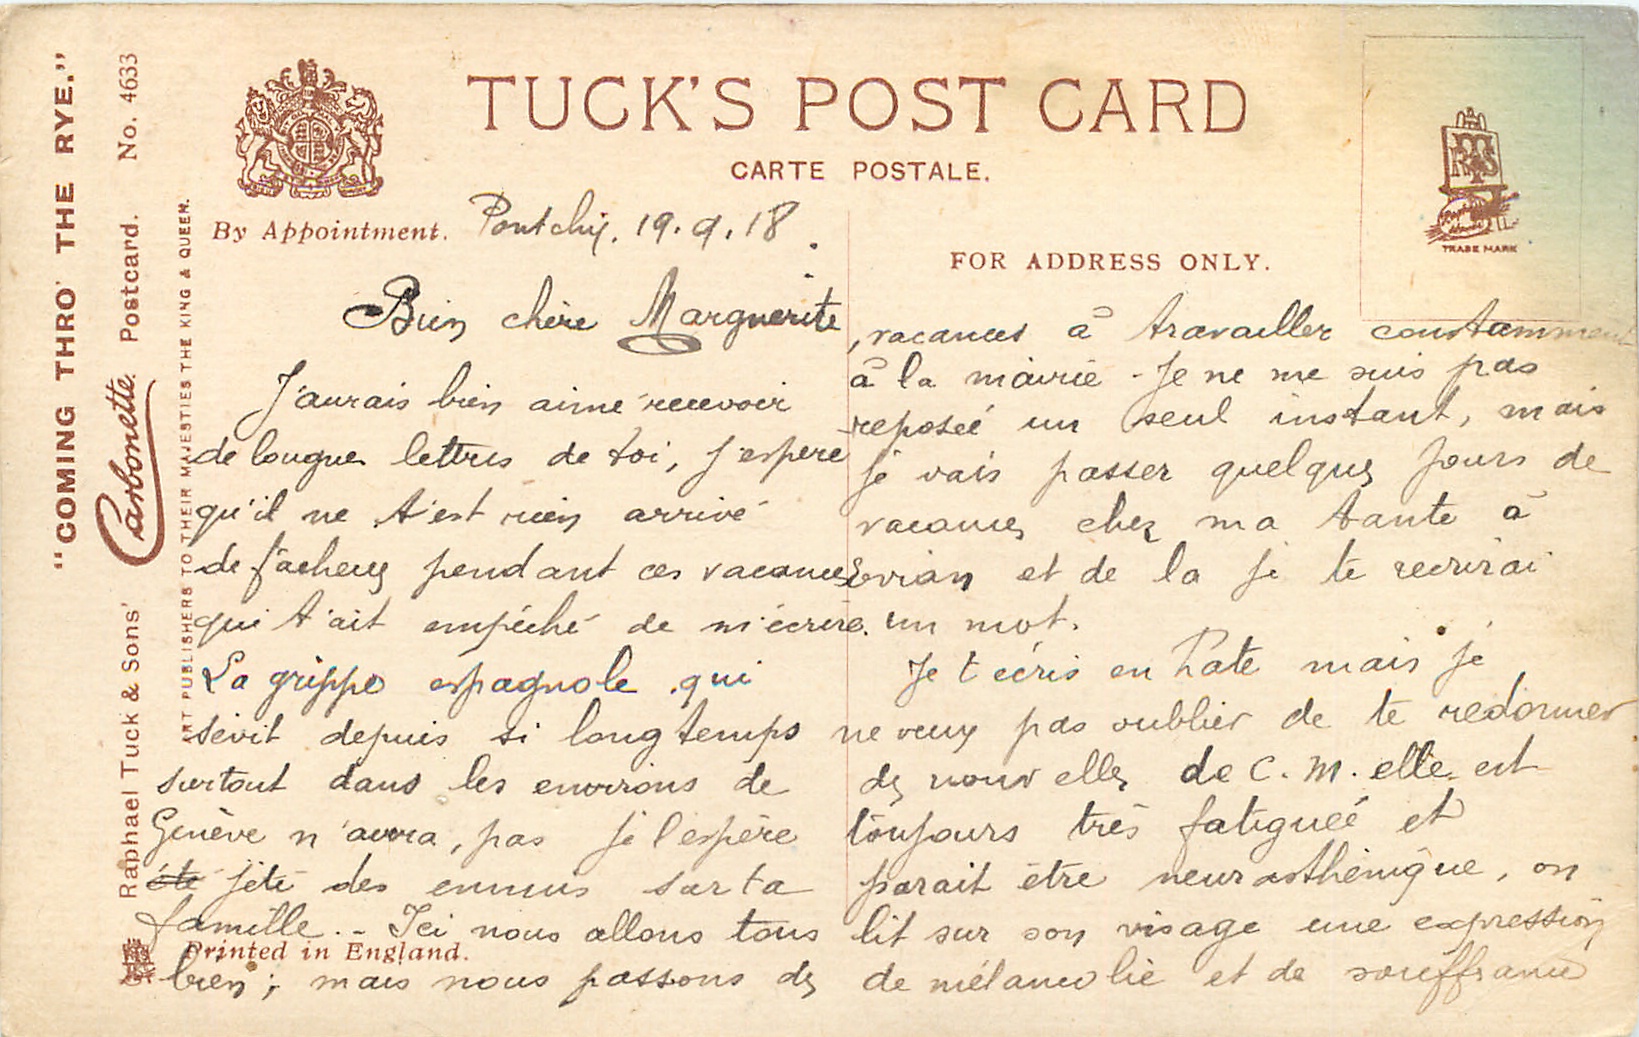 "COMING THRO' THE RYE."
Raphael Tuck & Sons' Carbonette Postcard. No. 4633
ART PUBLISHERS TO THEIR MAJESTIES THE KING & QUEEN.
By Appointment.
TUCK'S POST CARD
CARTE POSTALE.
FOR ADDRESS ONLY.
TRADE MARK
Printed in England.
19.9.18
Bien chère Marguerite
J'aurais bien aimé recevoir
de longues lettres de toi, j'espère
qu'il ne t'est rien arrivé
de fâcheux pendant ces vacances
qui t'ait empêché de m'écrire.
La grippe espagnole qui
sévit depuis si longtemps
surtout dans les environs de
Genève n'aura, pas je l'espère
été jeté des ennuis sur ta
famille.- Ici nous allons tous
bien; mais nous passons des
vacances à travailler constamment
à la mairie - Je ne me suis pas
reposée un seul instant, mais
je vais passer quelques jours de
vacances chez ma tante à
Evian et de la je te recrirai
un mot.
Je t'écris en hate mais je
ne veux pas oublier de te redonner
des nouvelles de C. M. elle est
toujours très fatiguée et
parait être neurasthénique, on
lit sur son visage une expression
de mélancolie et de souffrance